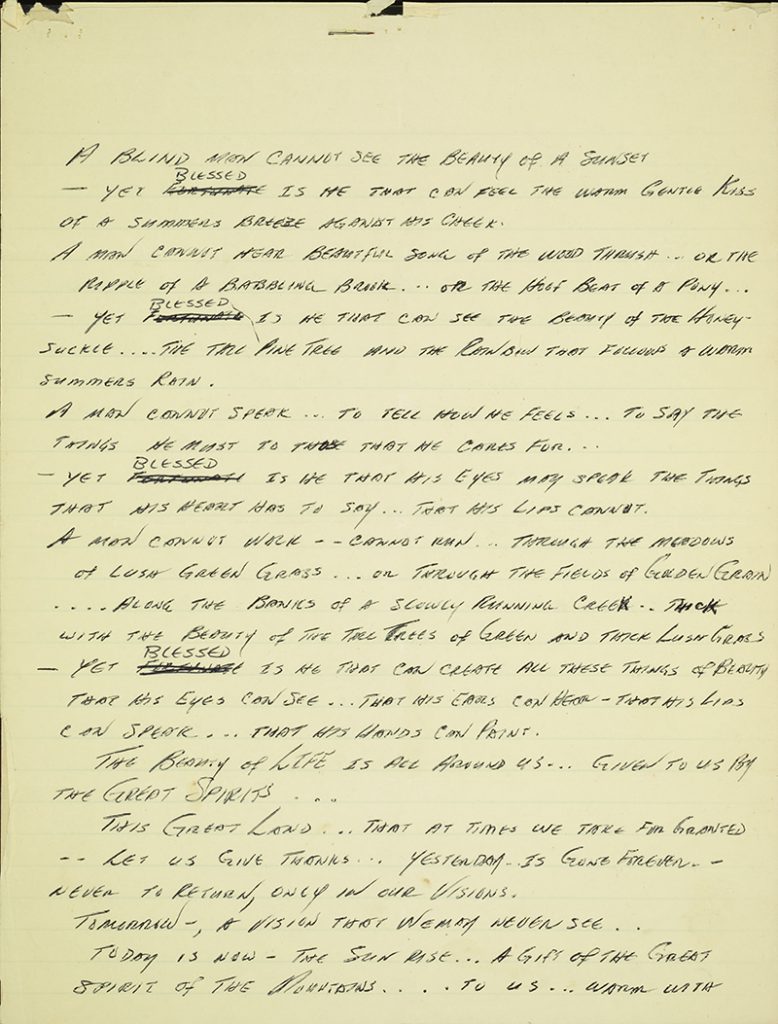 A BLIND MAN CANNOT SEE THE BEAUTY OF A SUNSET
BLESSED
— YET FORTUNATE IS HE THAT CAN FEEL THE WARM GENTLE KISS
OF A SUMMERS BREEZE AGAINST HIS CHEEK.
A MAN CANNOT HEAR BEAUTIFUL SONG OF THE WOOD THRUSH... OR THE
RIPPLE OF A BABBLING BROOK... OR THE HOOF BEAT OF A PONY...
BLESSED
— YET FORTUNATE IS HE THAT CAN SEE THE BEAUTY OF THE HONEY-
SUCKLE.... THE TALL PINE TREE AND THE RAINBOW THAT FOLLOWS A WARM
SUMMERS RAIN.
A MAN CANNOT SPEAK ... TO TELL HOW HE FEELS... TO SAY THE
THINGS HE MUST TO THOSE THAT HE CARES FOR...
BLESSED
— YET FORTUNATE IS HE THAT HIS EYES MAY SPEAK THE THINGS
THAT HIS HEART HAS TO SAY... THAT HIS LIPS CANNOT.
A MAN CANNOT WALK -- CANNOT RUN... THROUGH THE MEADOWS
OF LUSH GREEN GRASS ... OR THROUGH THE FIELDS OF GOLDEN GRAIN
.... ALONG THE BANKS OF A SLOWLY RUNNING CREEK.. THICK
WITH THE BEAUTY OF THE TALL TREES OF GREEN AND THICK LUSH GRASS
BLESSED
— YET FORTUNATE IS HE THAT CAN CREATE ALL THESE THINGS OF BEAUTY
THAT HIS EYES CAN SEE... THAT HIS EARS CAN HEAR - THAT HIS LIPS
CAN SPEAK.... THAT HIS HANDS CAN PAINT.
THE BEAUTY OF LIFE IS ALL AROUND US... GIVEN TO US BY
THE GREAT SPIRITS ....
THIS GREAT LAND... THAT AT TIMES WE TAKE FOR GRANTED
-- LET US GIVE THANKS... YESTERDAY.. IS GONE FOREVER. -
NEVER TO RETURN, ONLY IN OUR VISIONS.
TOMORROW-, A VISION THAT WE MAY NEVER SEE...
TODAY IS NOW - THE SUN RISE... A GIFT OF THE GREAT
SPIRIT OF THE MOUNTAINS..... TO US... WARM WITH